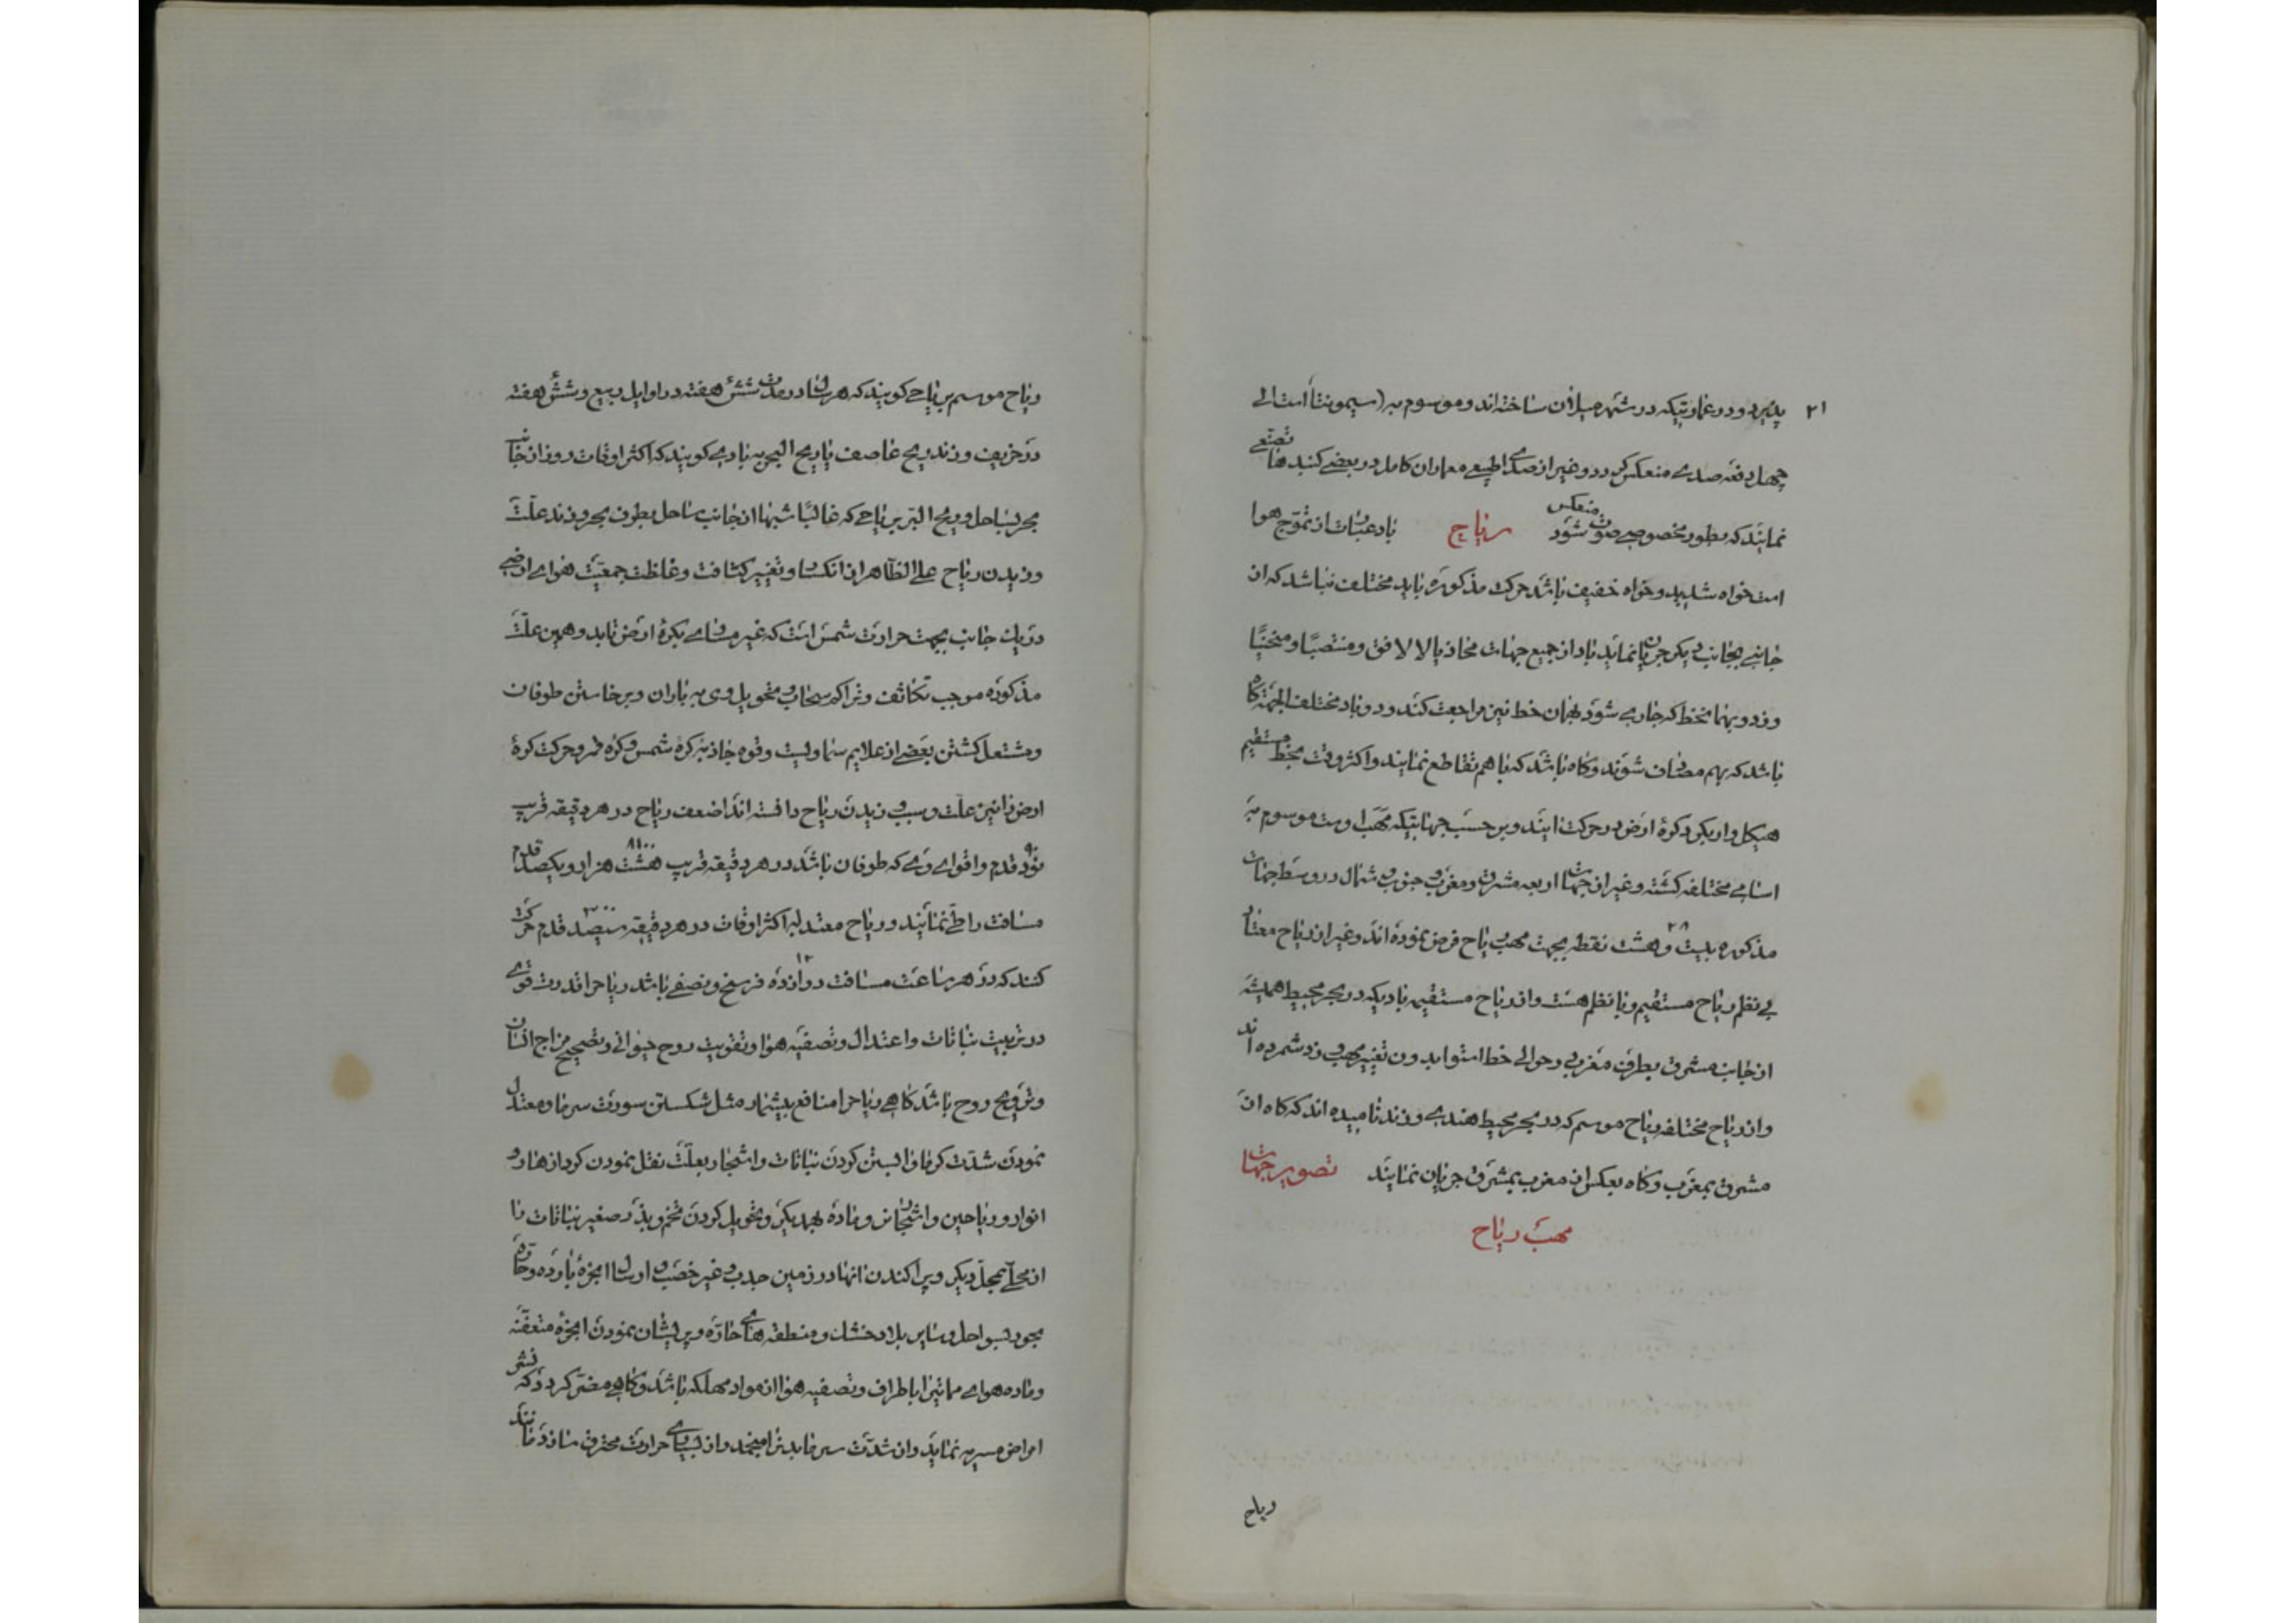 ۲۱ پذیرد و در عمارتیکه در شهر میلان ساخته اند و موسوم به (سیمونتا) است الی
چهل دفعه صدی منعکس کردد و غیر از صدای طبیعی معماران کامل در بعضی کنبدها تصنعی
نمایند که بطور مخصوصی صوت منعکس شود ریاح باد عبارت از تموّج هوا
است خواه شدید و خواه خفیف باشد حرکت مذکوره باید مختلف نباشد که از
جانبی بجانب دیکر جریان نماید باد از جمیع جهات محاذیا لالافق و منتصبًا و منحنیًا
وزد و بهمان خط که جاری شود بهمان خط نیز مراجعت کند و دو باد مختلف الجهة کاه
باشد که بهم مصادف شوند و کاه باشد که با هم تقاطع نمایند و اکثر وقت بخط مستقیم
هیکل وار بکرد کرهٔ ارض در حرکت ایند و بر حسب جهاتیکه مهبّ اوست موسوم به
اسامی مختلفه کشته و غیر از جهات اربعه مشرق و مغرب و جنوب و شمال در وسط جهات
مذکوره بیست و هشت ۲۸ نقطه بجهت مهب ریاح فرض نموده اند و غیر از ریاح معتاد
بی نظم ریاح مستقیم و با نظم هست و از ریاح مستقیمه بادیکه در بحر محیط همیشه
از جانب مشرق بطرف مغرب در حوالی خط استوا بدون تغییر مهب وزد شمرده اند
و از ریاح مختلفه ریاح موسم که در بحر محیط هندی وزند نامیده اند که کاه از
مشرق بمغرب و کاه بعکس از مغرب بمشرق جریان نمایند تصویر جهات
مهبّ ریاح
ریاح
و ریاح موسم بریاحی کویند که هر سال در مدت شش هفته در اوایل ربیع و شش هفته
در خریف وزند ریح عاصف یا ریح البحر به بادی کویند که اکثر اوقات روز از جانب
بحر بساحل و ریح البر بریاحی که غالبًا شبها از جانب ساحل بطرف بحر وزند علّت
وزیدن ریاح علی الظاهر از انکسار و تغییر کثافت و غلظت جمعیّت هوای ارضی
در یک جانب بجهت حرارت شمس است که غیر مساوی بکرهٔ ارض تابد و همین علّت
مذکوره موجب تکاثف و تراکم سحاب و تحویل وی به باران و برخاستن طوفان
و مشتعل کشتن بعضی از علایم سماویست و قوه جاذبه کره شمس و کره قمر و حرکت کرهٔ
ارض را نیز علّت و سبب وزیدن ریاح دانسته اند اضعف ریاح در هر دقیقه قریب
نود ۹۰ قدم و اقوای وی که طوفان باشد در هر دقیقه قریب هشت هزار و یکصد ۸۱۰۰ قدم
مسافت را طی نمایند و ریاح معتدله اکثر اوقات در هر دقیقه سیصد ۳۰۰ قدم حرکت
کنند که در هر ساعت مسافت دوازده ۱۲ فرسخ و نصفی باشد ریاح را قدرت قوی
در تربیت نباتات و اعتدال و تصفیه هوا و تقویت روح حیوانی و تصحیح مزاج انسان
و ترویح روح باشد کاهی ریاح را منافع بیشمار مثل شکستن سورت سرما و معتدل
نمودن شدّت کرما و ابستن کردن نباتات و اشجار بعلّت نقل نمودن کرد ازهار و
انوار و ریاحین و اشجار نر و ماده بهمدیکر و تحویل کردن تخم و بذر صغیر نباتات را
از محلی بمحل دیکر و پراکندن انها در زمین جدب و غیر خصب و ارسال ابخرهٔ بارده و حاره
بحور بسواحل و سایر بلاد خشک و منطقه های حارّه و پریشان نمودن ابخرهٔ متعفنه
و ماده هوای ممایتیرا باطراف و تصفیه هوا از مواد مهلکه باشد و کاهی مضرّ کردد که نشر
امراض مسریه نماید و از شدّت سرما بدنرا منجمد و از بسیاری حرارت محترق سازد مانند